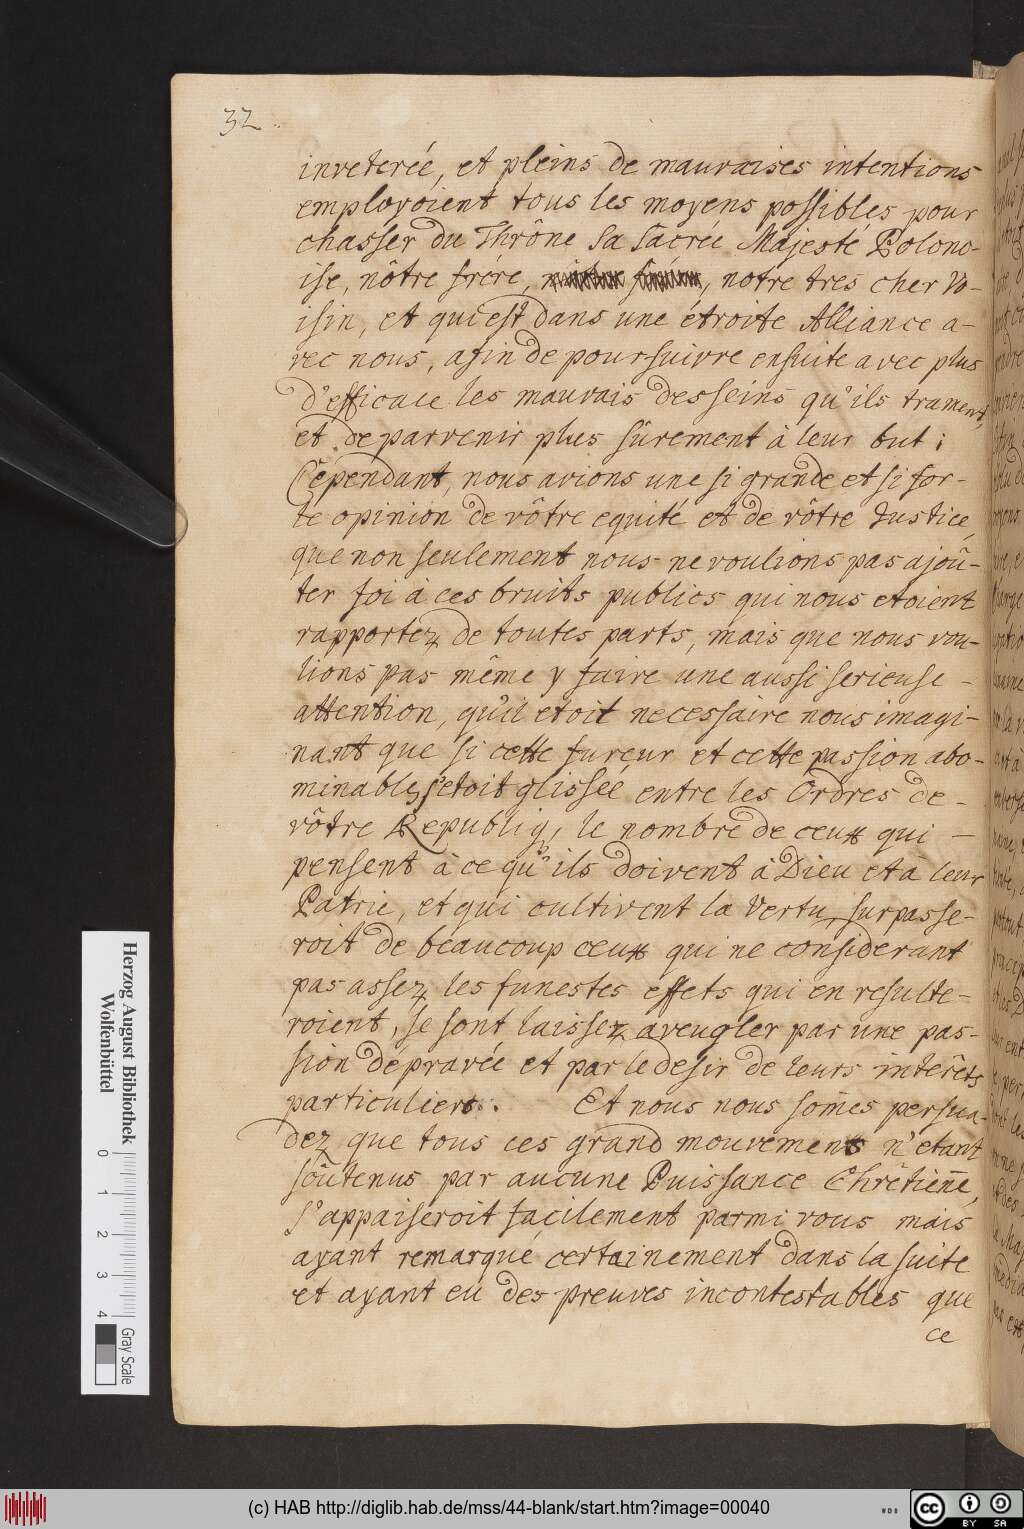 32
inveterée, et pleins de mauvaises intentions
employoient tous les moyens possibles pour
chasser du Thrône Sa Sacrée Majesté Polono-
ise, nôtre frére, notre tres cher Vo-
isin, et qui est dans une étroite Alliance a-
vec nous, afin de poursuivre ensuite avec plus
d'efficace les mauvais desseins qu'ils trament,
et de parvenir plus sûrement à leur but;
Cependant, nous avions une si grande et si for-
te opinion de vôtre equité et de vôtre Justice,
que non seulement nous ne voulions pas ajoû-
ter foi à ces bruits publics qui nous etoient
rapportez de toutes parts, mais que nous vou-
lions pas même y faire une aussi serieuse -
attention, qu'il etoit necessaire nous imagi-
nant que si cette fureur et cette passion abo-
minable s'etoit glissée entre les Ordres de -
vôtre Republiq, le nombre de ceux qui -
pensent à ce qu'ils doivent à Dieu et à leur
Patrie, et qui cultivent la Vertu, surpasse-
roit de beaucoup ceux qui ne considerant
pas assez les funestes effets qui en resulte-
roient, se sont laissez aveugler par une pas-
sion dépravée et par le desir de leurs intérêts
particuliers. Et nous nous som̃es persua-
dez que tous ces grand mouvements n'etant
soûtenus par aucune Puissance Chrêtien̄e,
s'appaiseroit facilement parmi vous mais
ayant remarqué certainement dans la suite
et ayant eu des preuves incontestables que
ce
Herzog August Bibliothek
Wolfenbüttel
0 1 2 3 4
Gray Scale
(c) HAB http://diglib.hab.de/mss/44-blank/start.htm?image=00040
WDB
cc
BY SA